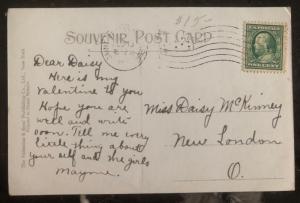 $15-
SOUVENIR POST CARD
Dear Daisy
Here is my
Valentine to you
Hope you are
well and write
soon. Tell me every
little thing about
your self and the girls
Mayme.
Miss Daisy McKinney
New London
O.
ONE CENT